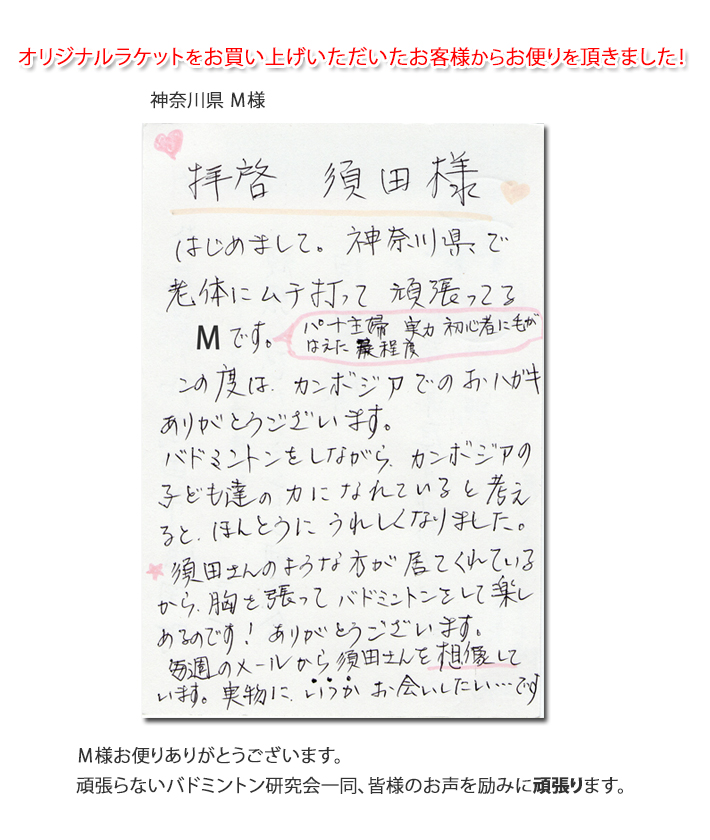 オリジナルラケットをお買い上げいただいたお客様からお便りを頂きました!
神奈川県 M様
拝啓 須田様
はじめまして。神奈川県で
老体にムチ打って 頑張ってる
Mです。
パート主婦 実力 初心者に毛が
はえた程度
この度は、カンボジアでのおハガキ
ありがとうございます。
バドミントンをしながら、カンボジアの
子ども達の力になれていると考え
ると、ほんとうにうれしくなりました。
須田さんのような方が居てくれている
から、胸を張ってバドミントンをして楽し
めるのです!ありがとうございます。
毎週のメールから須田さんを想像して
います。実物に、いつかお会いしたい…です
M様お便りありがとうございます。
頑張らないバドミントン研究会一同、皆様のお声を励みに頑張ります。